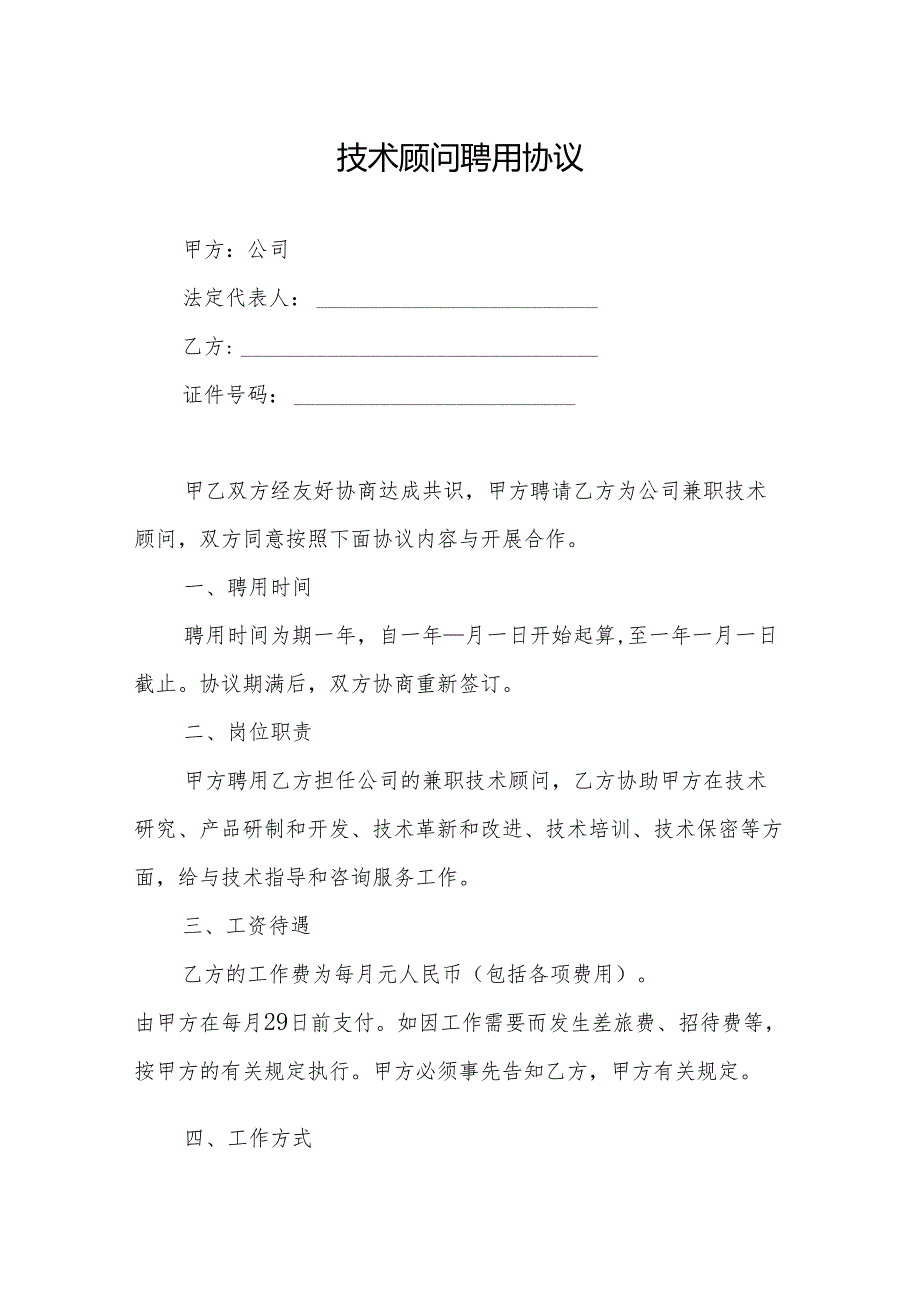 技术顾问聘用协议
甲方：公司
法定代表人：__________________________
乙方:_________________________________
证件号码：__________________________
甲乙双方经友好协商达成共识，甲方聘请乙方为公司兼职技术
顾问，双方同意按照下面协议内容与开展合作。
一、聘用时间
聘用时间为期一年，自一年—月一日开始起算,至一年一月一日
截止。协议期满后，双方协商重新签订。
二、岗位职责
甲方聘用乙方担任公司的兼职技术顾问，乙方协助甲方在技术
研究、产品研制和开发、技术革新和改进、技术培训、技术保密等方
面，给与技术指导和咨询服务工作。
三、工资待遇
乙方的工作费为每月元人民币（包括各项费用）。
由甲方在每月29日前支付。如因工作需要而发生差旅费、招待费等，
按甲方的有关规定执行。甲方必须事先告知乙方，甲方有关规定。
四、工作方式